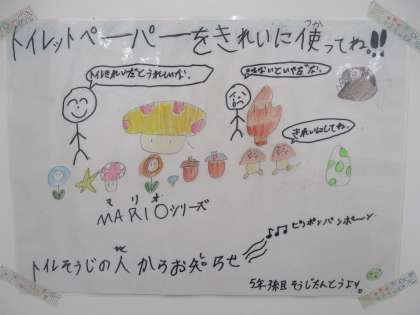 トイレットペーパーをきれいに使ってね!!
つか
トイレきれいだとうれしいな。
きたないといやだな。
きれいにしてね。
マリオ
MARIOシリーズ
ピンポンパンポーン
トイレそうじの人からお知らせ
5年3組 そうじたんとうより